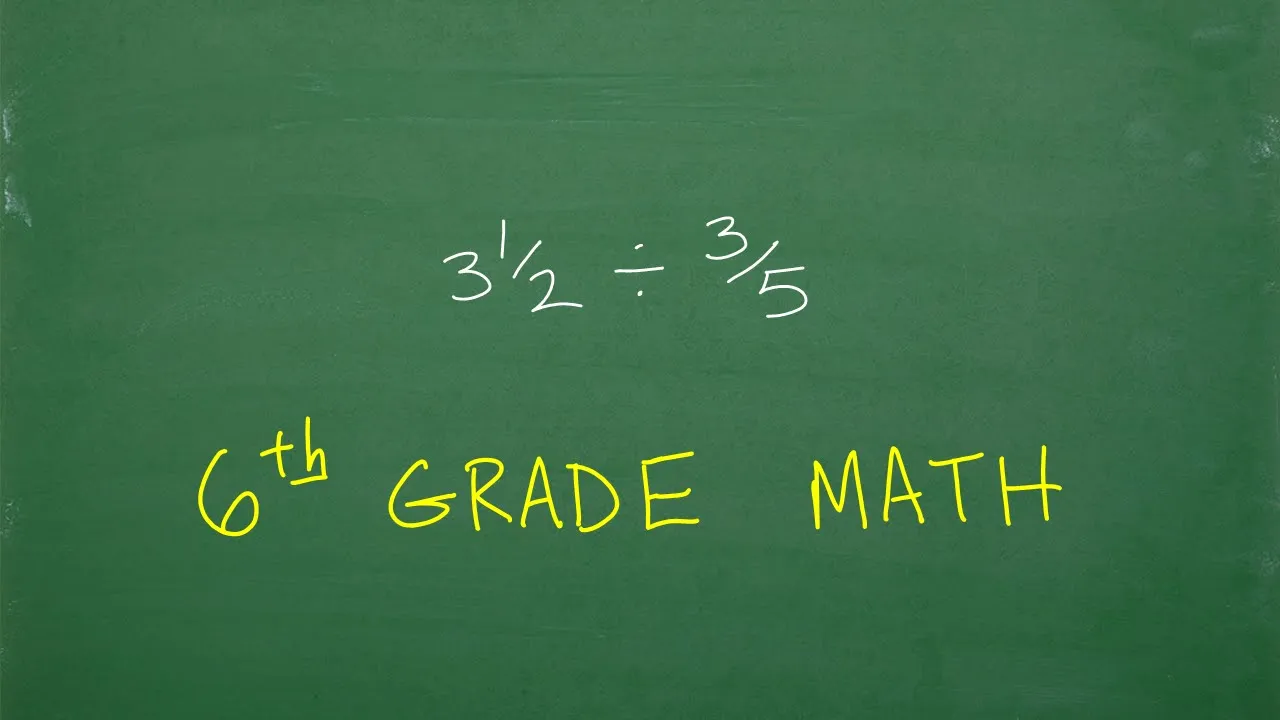 3 1/2 ÷ 3/5
6th GRADE MATH